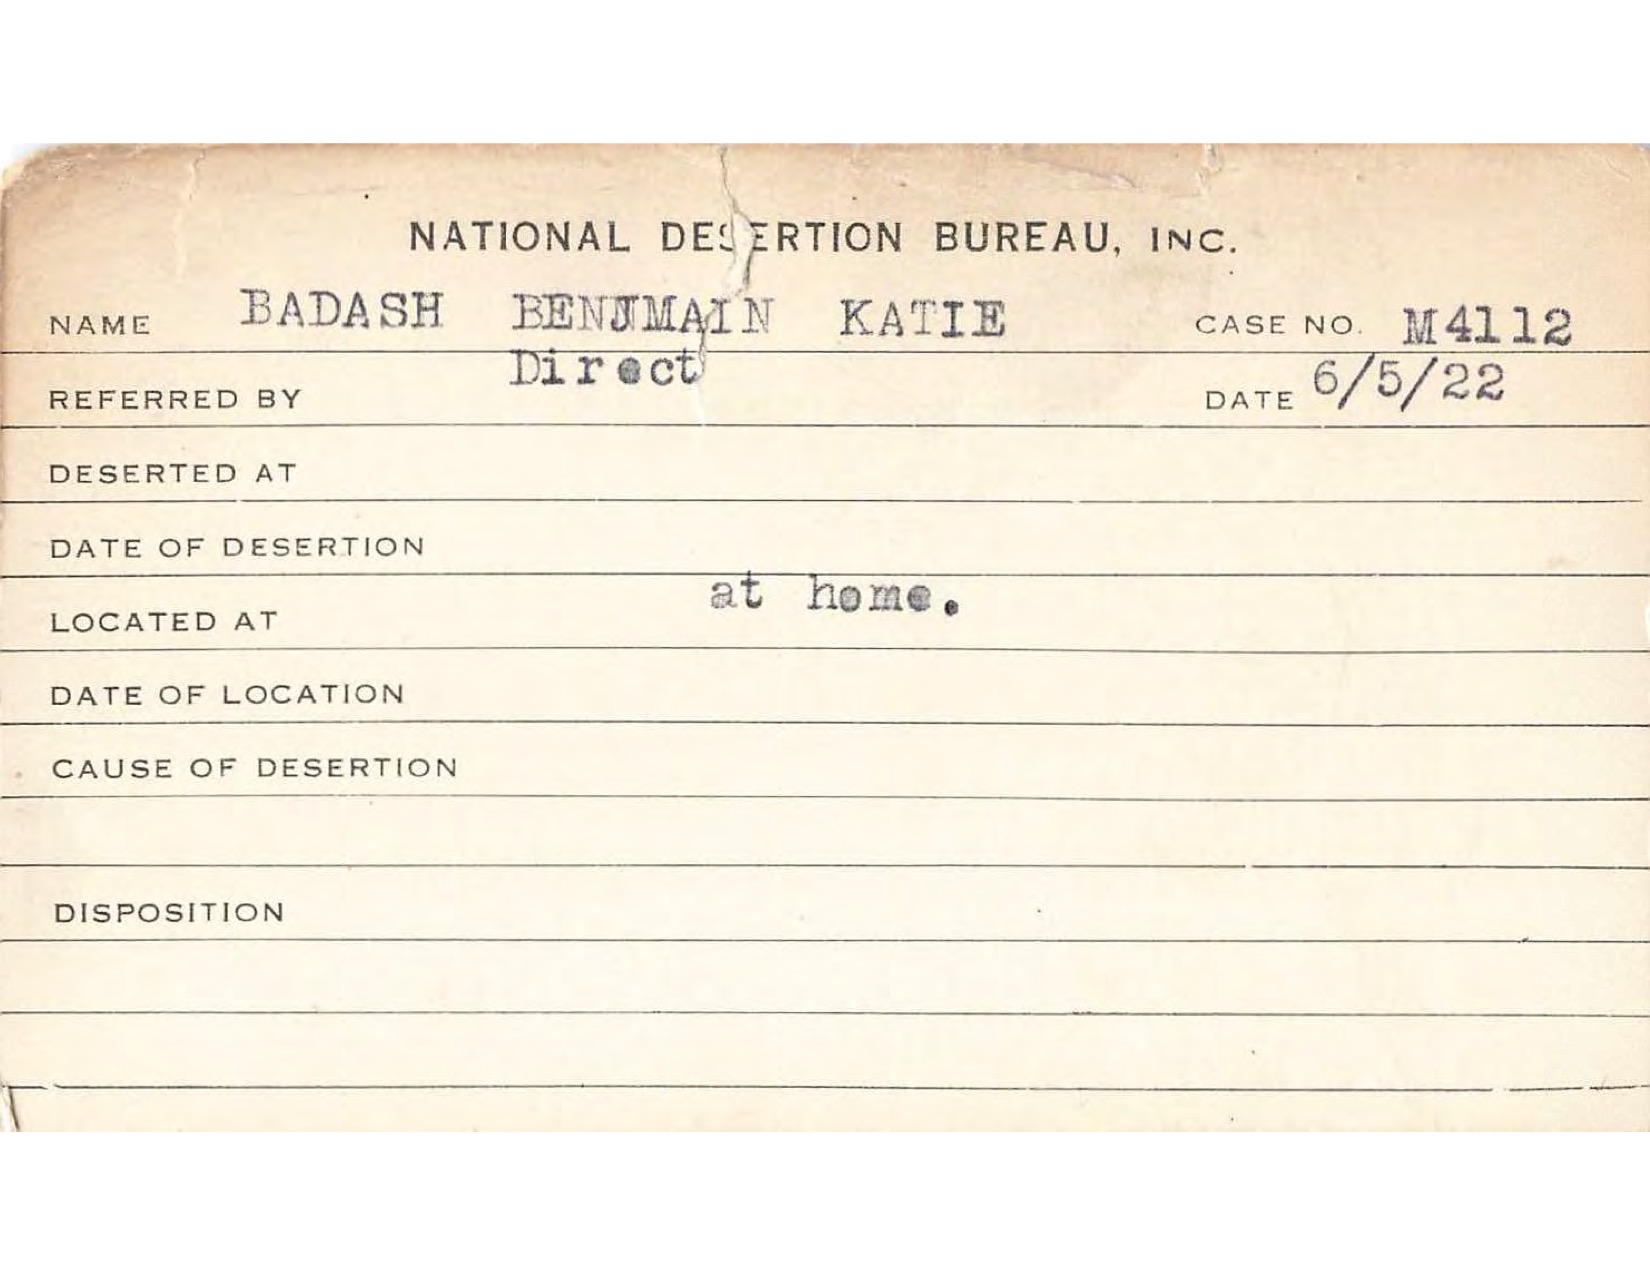 NATIONAL DESERTION BUREAU, INC.
NAME BADASH BENJMAIN KATIE CASE NO. M4112
REFERRED BY Direct DATE 6/5/22
DESERTED AT
DATE OF DESERTION
LOCATED AT at home.
DATE OF LOCATION
CAUSE OF DESERTION
DISPOSITION